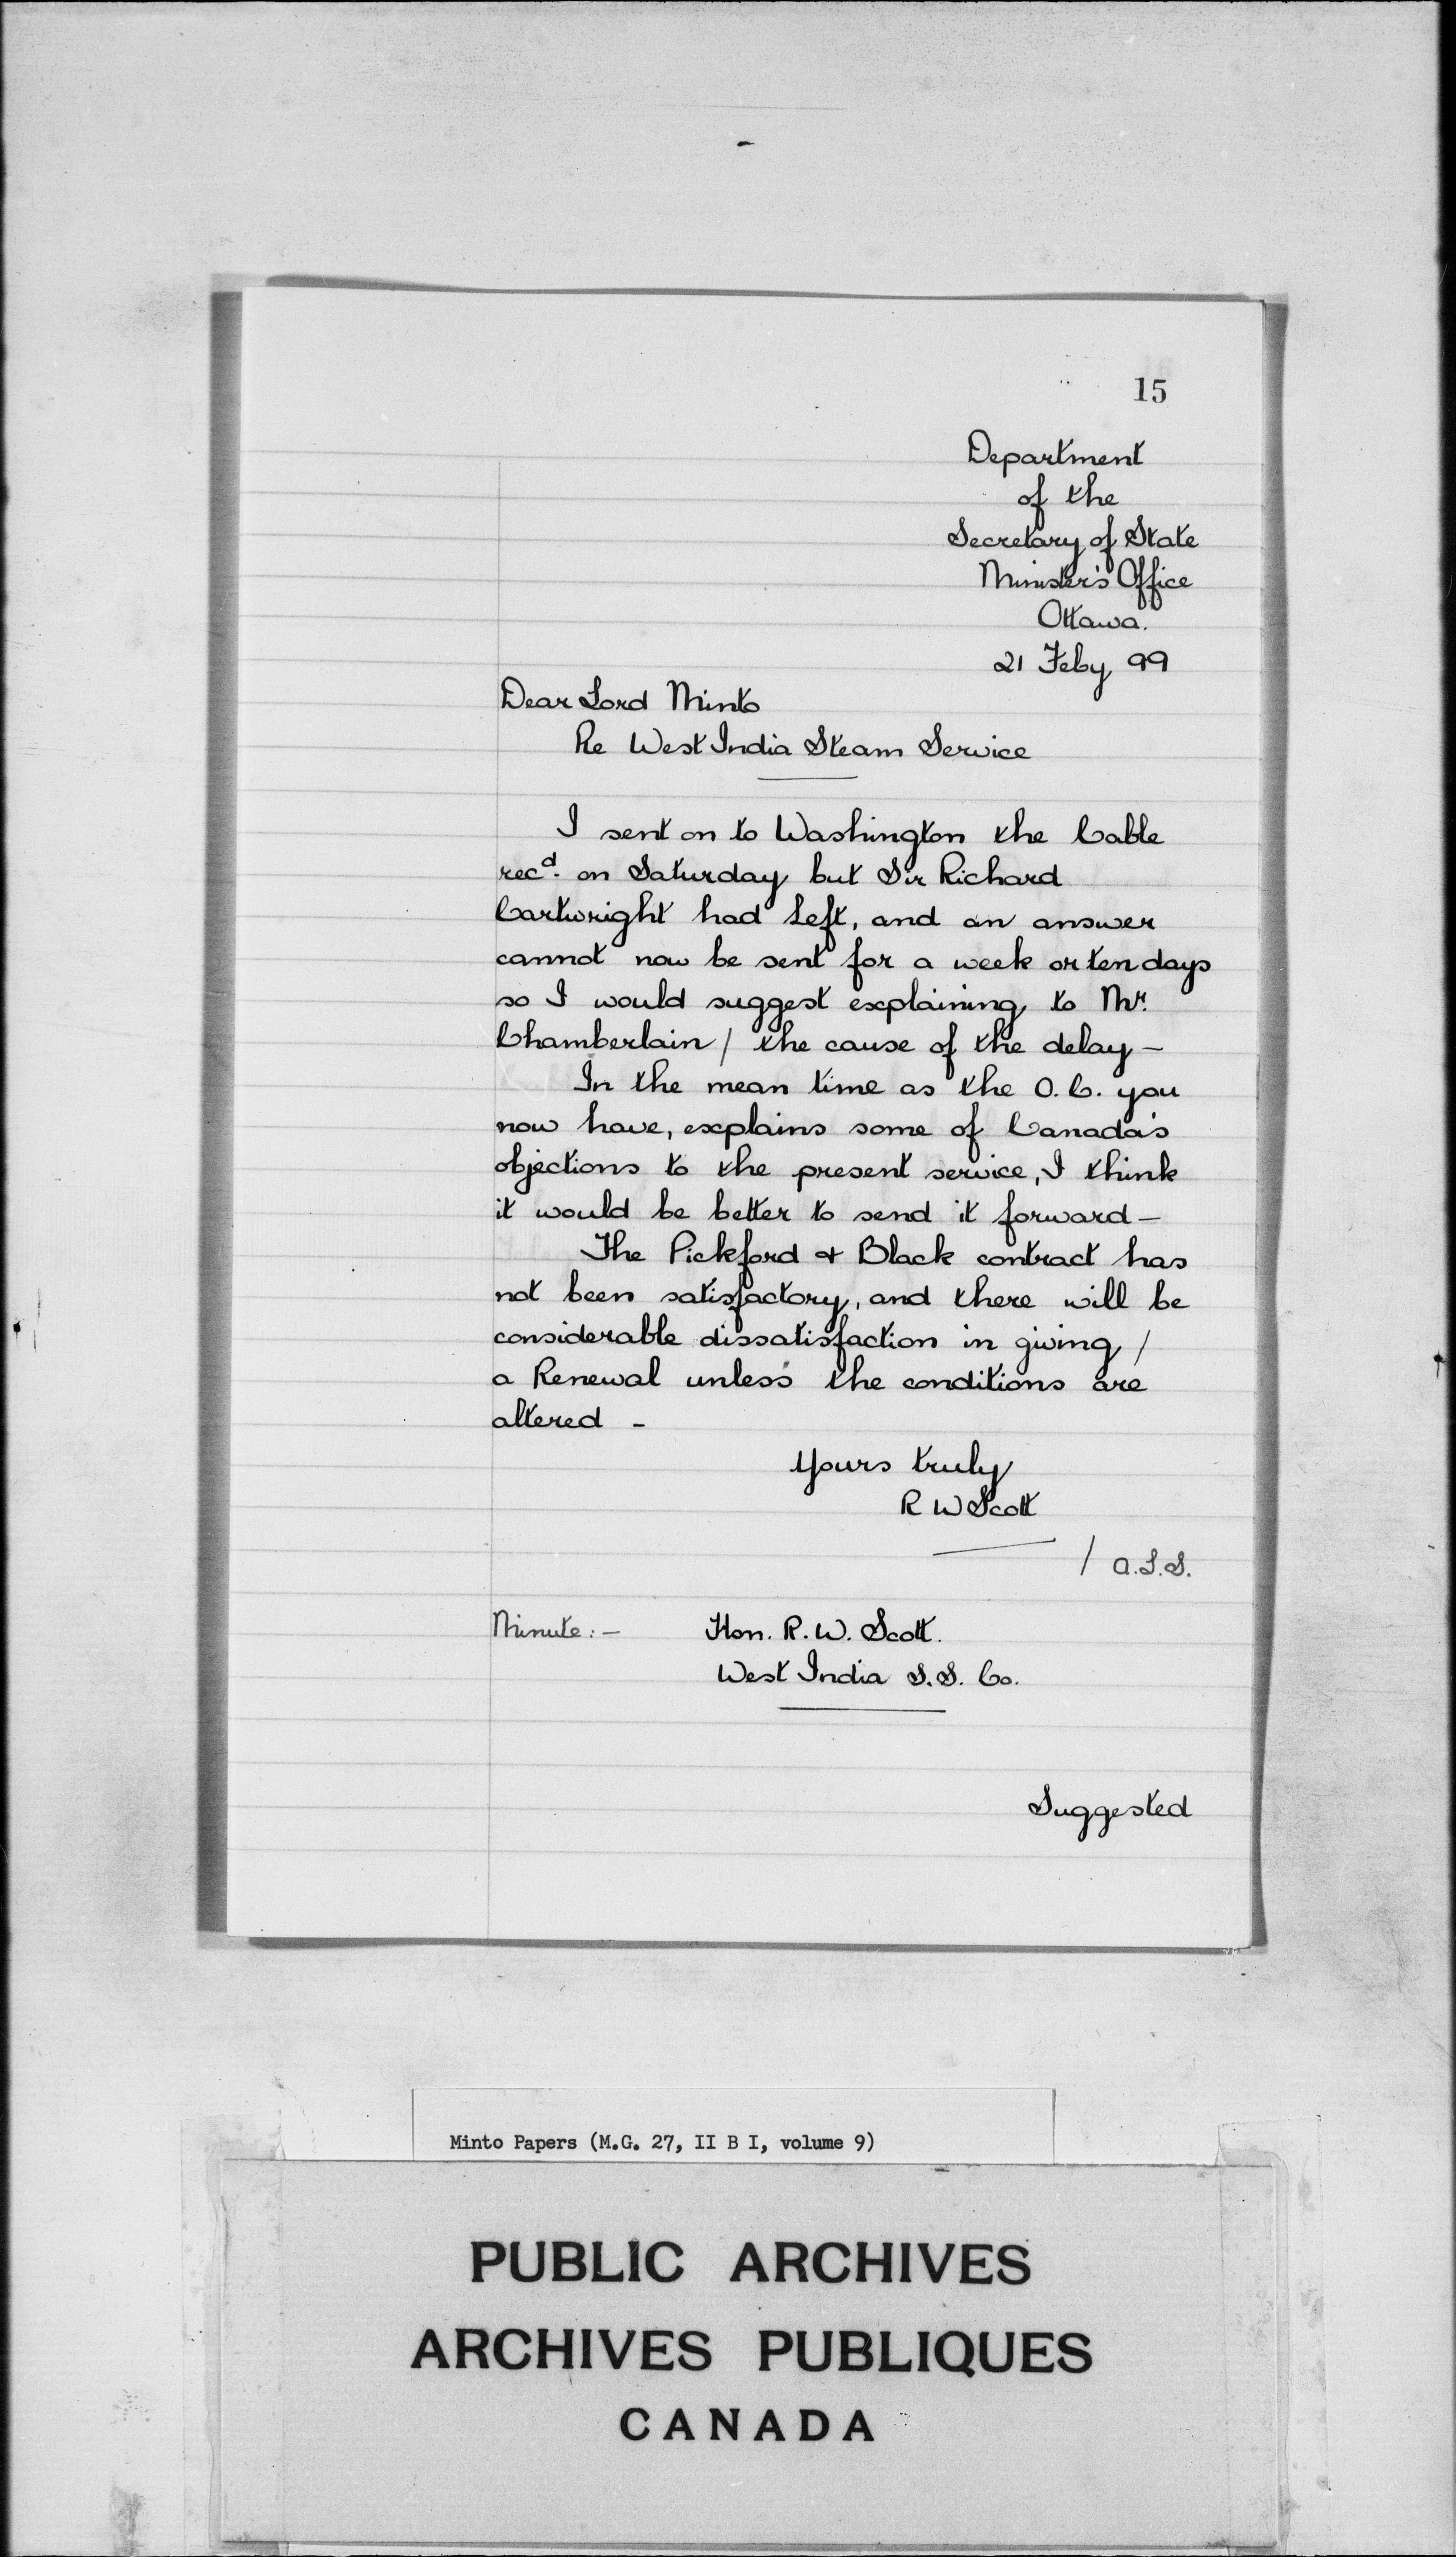 15
Department
of the
Secretary of State
Minister's Office
Ottawa.
21 Feby 99
Dear Lord Minto
Re West India Steam Service
I sent on to Washington the Cable
recd. on Saturday but Sir Richard
Cartwright had left, and an answer
cannot now be sent for a week or ten days
so I would suggest explaining to Mr.
Chamberlain / the cause of the delay —
In the mean time as the O.C. you
now have, explains some of Canada's
objections to the present service, I think
it would be better to send it forward —
The Pickford & Black contract has
not been satisfactory, and there will be
considerable dissatisfaction in giving /
a Renewal unless the conditions are
altered -
Yours truly
R W Scott
/ A.L.S.
Minute: — Hon. R. W. Scott.
West India S.S. Co.
Suggested
Minto Papers (M.G. 27, II B I, volume 9)
PUBLIC ARCHIVES
ARCHIVES PUBLIQUES
CANADA